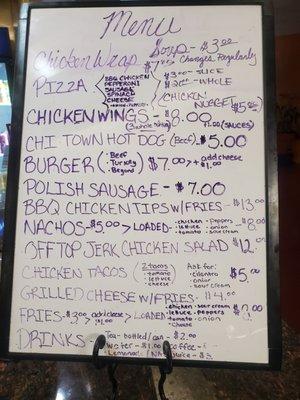 Menu
Soup - $3.00
Chicken Wrap $7.75 Changes Regularly
PIZZA BBQ CHICKEN PEPPERONI SAUSAGE SPINACH CHEESE
$3.00 - SLICE
WHOLE
CHICKEN NUGGET $5
CHICKEN WINGS - $8.00
(SAUCES)
CHI TOWN HOT DOG (Beef) $5.00
BURGER Beef Turkey Beyond $7.00 ++ add cheese $1.00
POLISH SAUSAGE - $7.00
BBQ CHICKEN TIPS W/FRIES - $13.00
NACHOS - $5.00 > LOADED - chicken - peppers - lettuce - onion - tomato - sour cream
OFFTOP JERK CHICKEN SALAD $12.
CHICKEN TACOS 2 tacos - tomato - lettuce - cheese Ask for: - cilantro - onion - sour cream $5.
GRILLED CHEESE W/FRIES - $4.00
FRIES - $2.00 add cheese > LOADED - chicken - sour cream - lettuce - peppers - tomato - onion - cheese
DRINKS Tea - bottled/can - $2.00
Water - $1.00 Coffee -
Lemonade Juice - $3